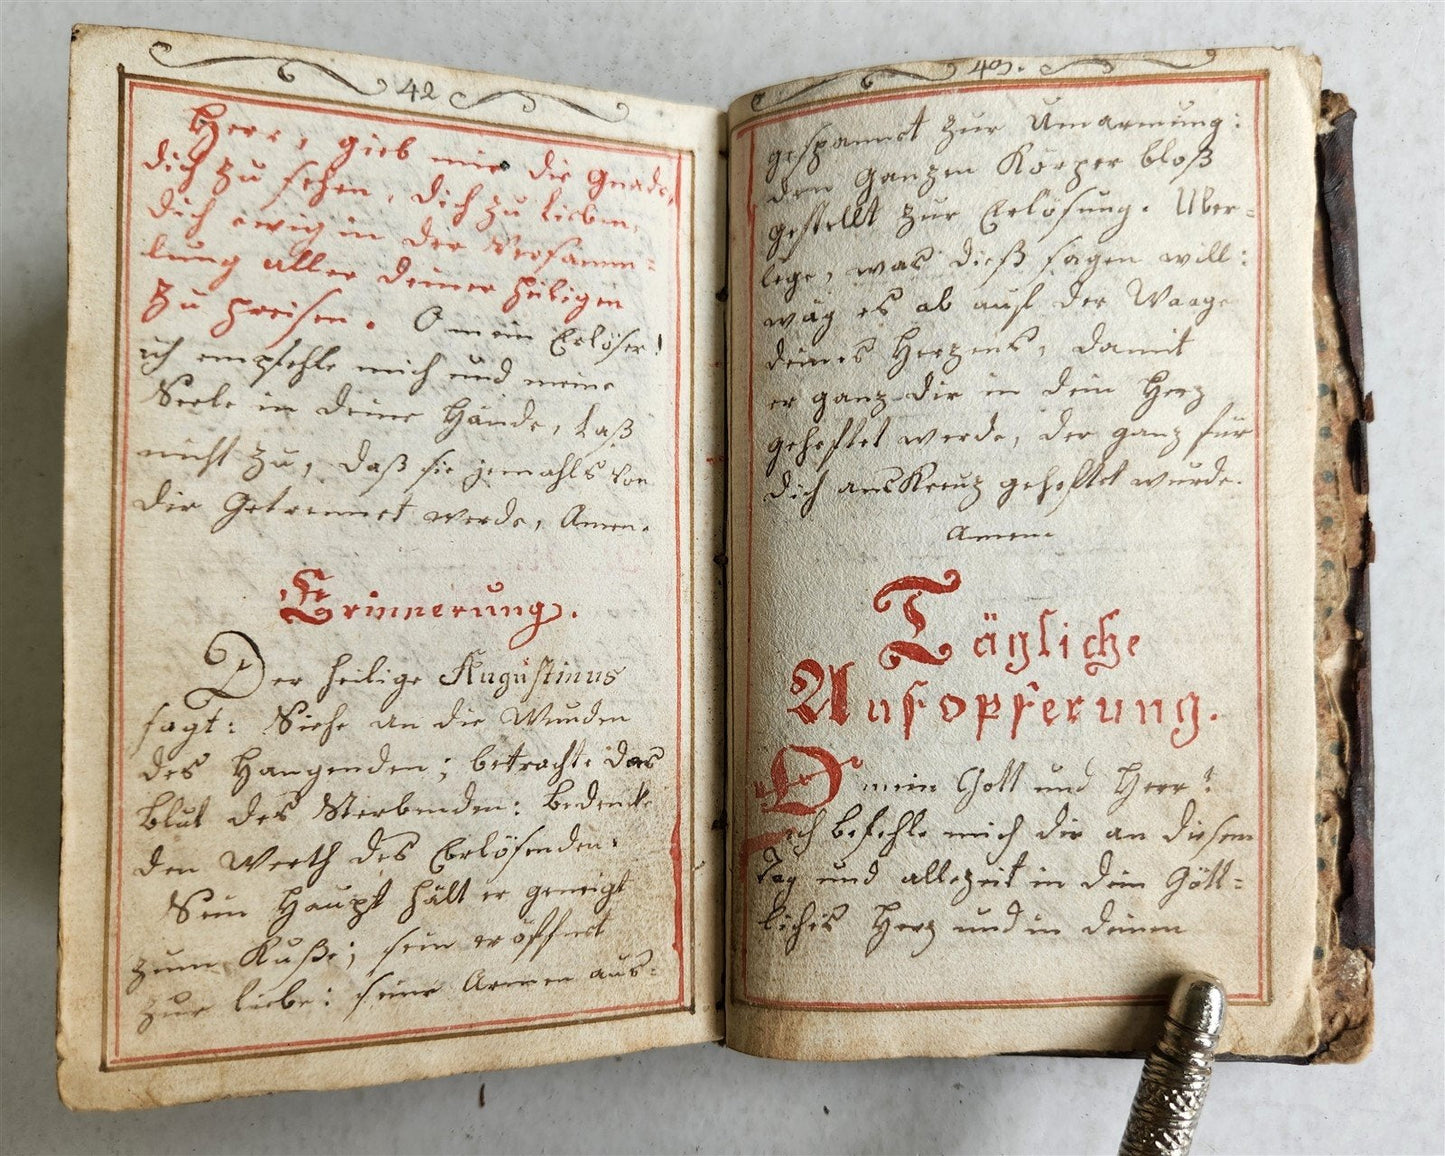 42
Herr, gieb mir die Gnade,
dich zu sehen, dich zu lieben,
dich ewig in der Versamm=
lung aller deiner Heiligen
zu preisen. O mein Erlöser!
ich empfehle mich und meine
Seele in deine Hände, laß
nicht zu, daß sie jemahls von
dir Getrennet werde, Amen.
Erinnerung.
Der heilige Augustinus
sagt: Siehe an die Wunden
des Hangenden; betrachte das
Blut des Sterbenden: bedencke
den Werth des Erlösenden:
Sein Haupt hält er geneigt
zum Kuße; sein eröffnet
zur liebe: seine Armen aus=
43.
gespannet zur Umarmung:
den Ganzen Körper bloß
gestellt zur Erlösung. Uber=
lege, was dieß sagen will:
wäg es ab auf der Waage
deines Herzens, damit
er ganz dir in dein Herz
geheftet werde, der ganz für
dich ans Kreuz geheftet wurde.
Amen
Tägliche
Aufopferung.
O mein Gott und Herr!
ich befehle mich dir an diesem
Tag und allezeit in dein Gött=
liches Herz und in deinen